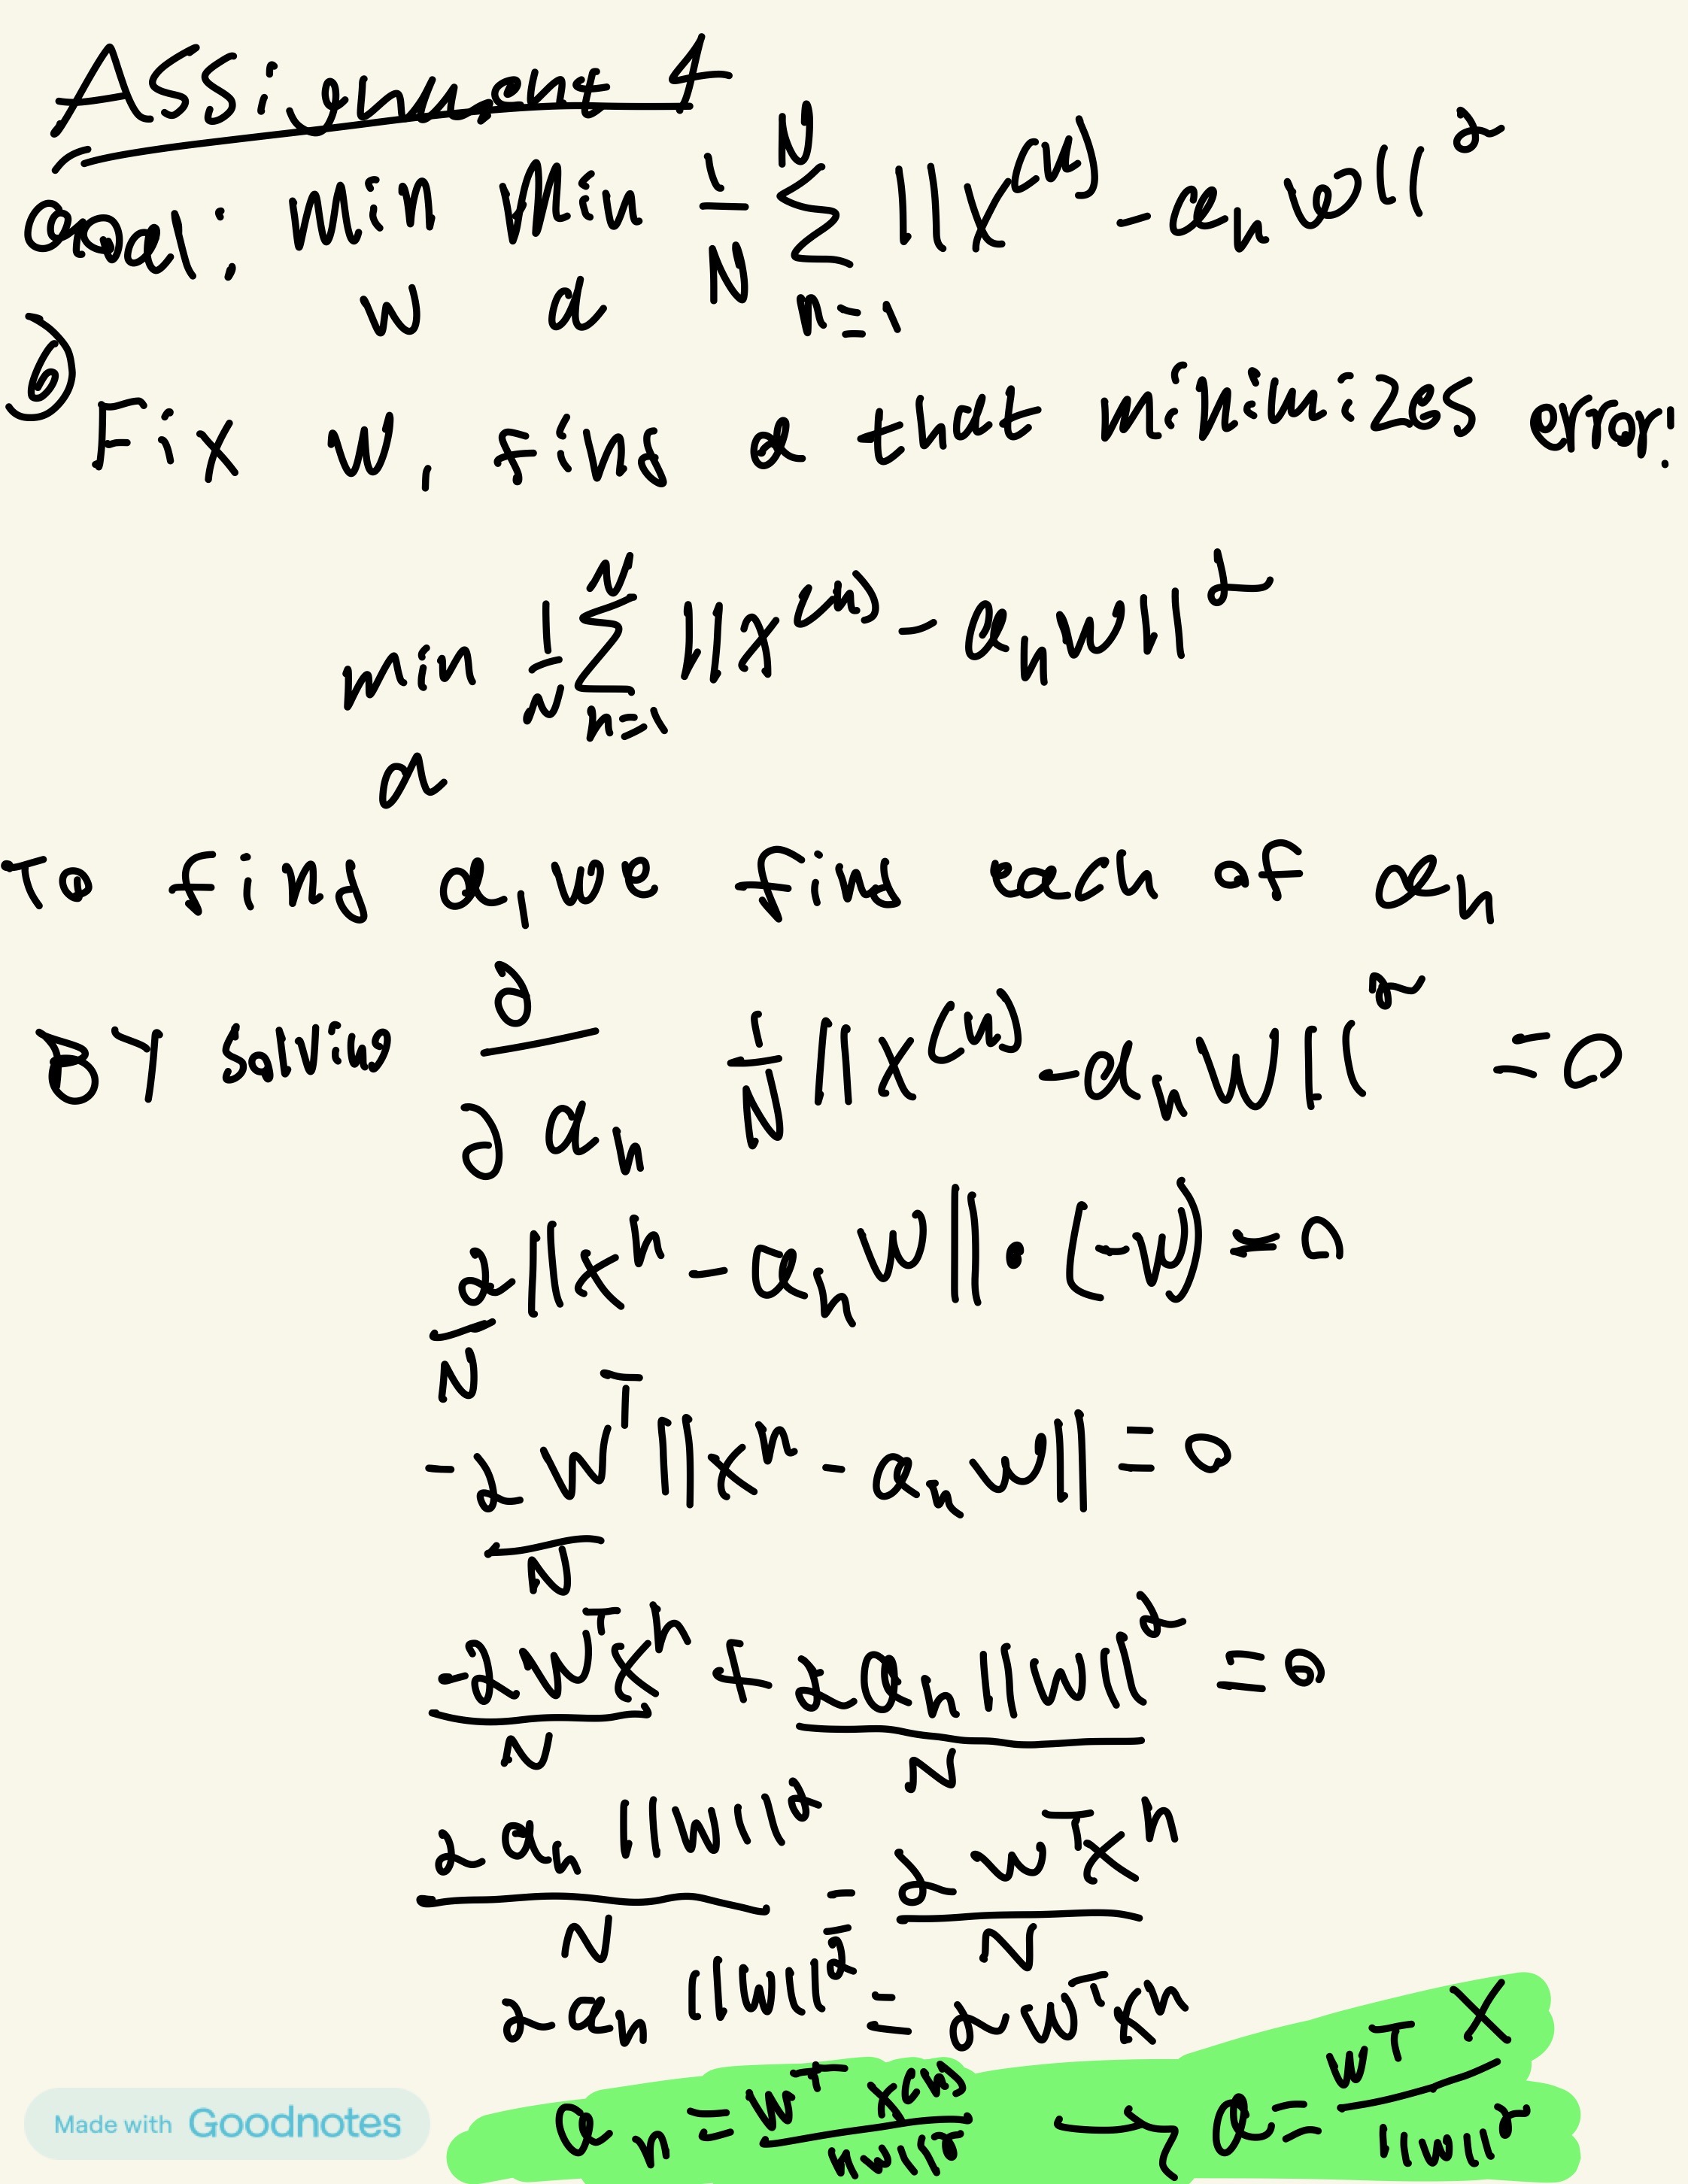 Assignment 4
Goal: min_w min_a 1/N Σ_{n=1}^{N} ||x^{(n)} - a_n w||^2
b) Fix w, find a that minimizes error:
min_a 1/N Σ_{n=1}^{N} ||x^{(n)} - a_n w||^2
To find a, we find each of a_n
By solving ∂/∂a_n 1/N ||x^{(n)} - a_n w||^2 = 0
2/N ||x^n - a_n w|| • (-w) = 0
-2/N w^T ||x^n - a_n w|| = 0
-2w^T x^n / N + 2a_n ||w||^2 / N = 0
2a_n ||w||^2 / N = 2w^T x^n / N
2a_n ||w||^2 = 2w^T x^n
a_n = w^T x^{(n)} / ||w||^2 → a = w^T X / ||w||^2
Made with Goodnotes